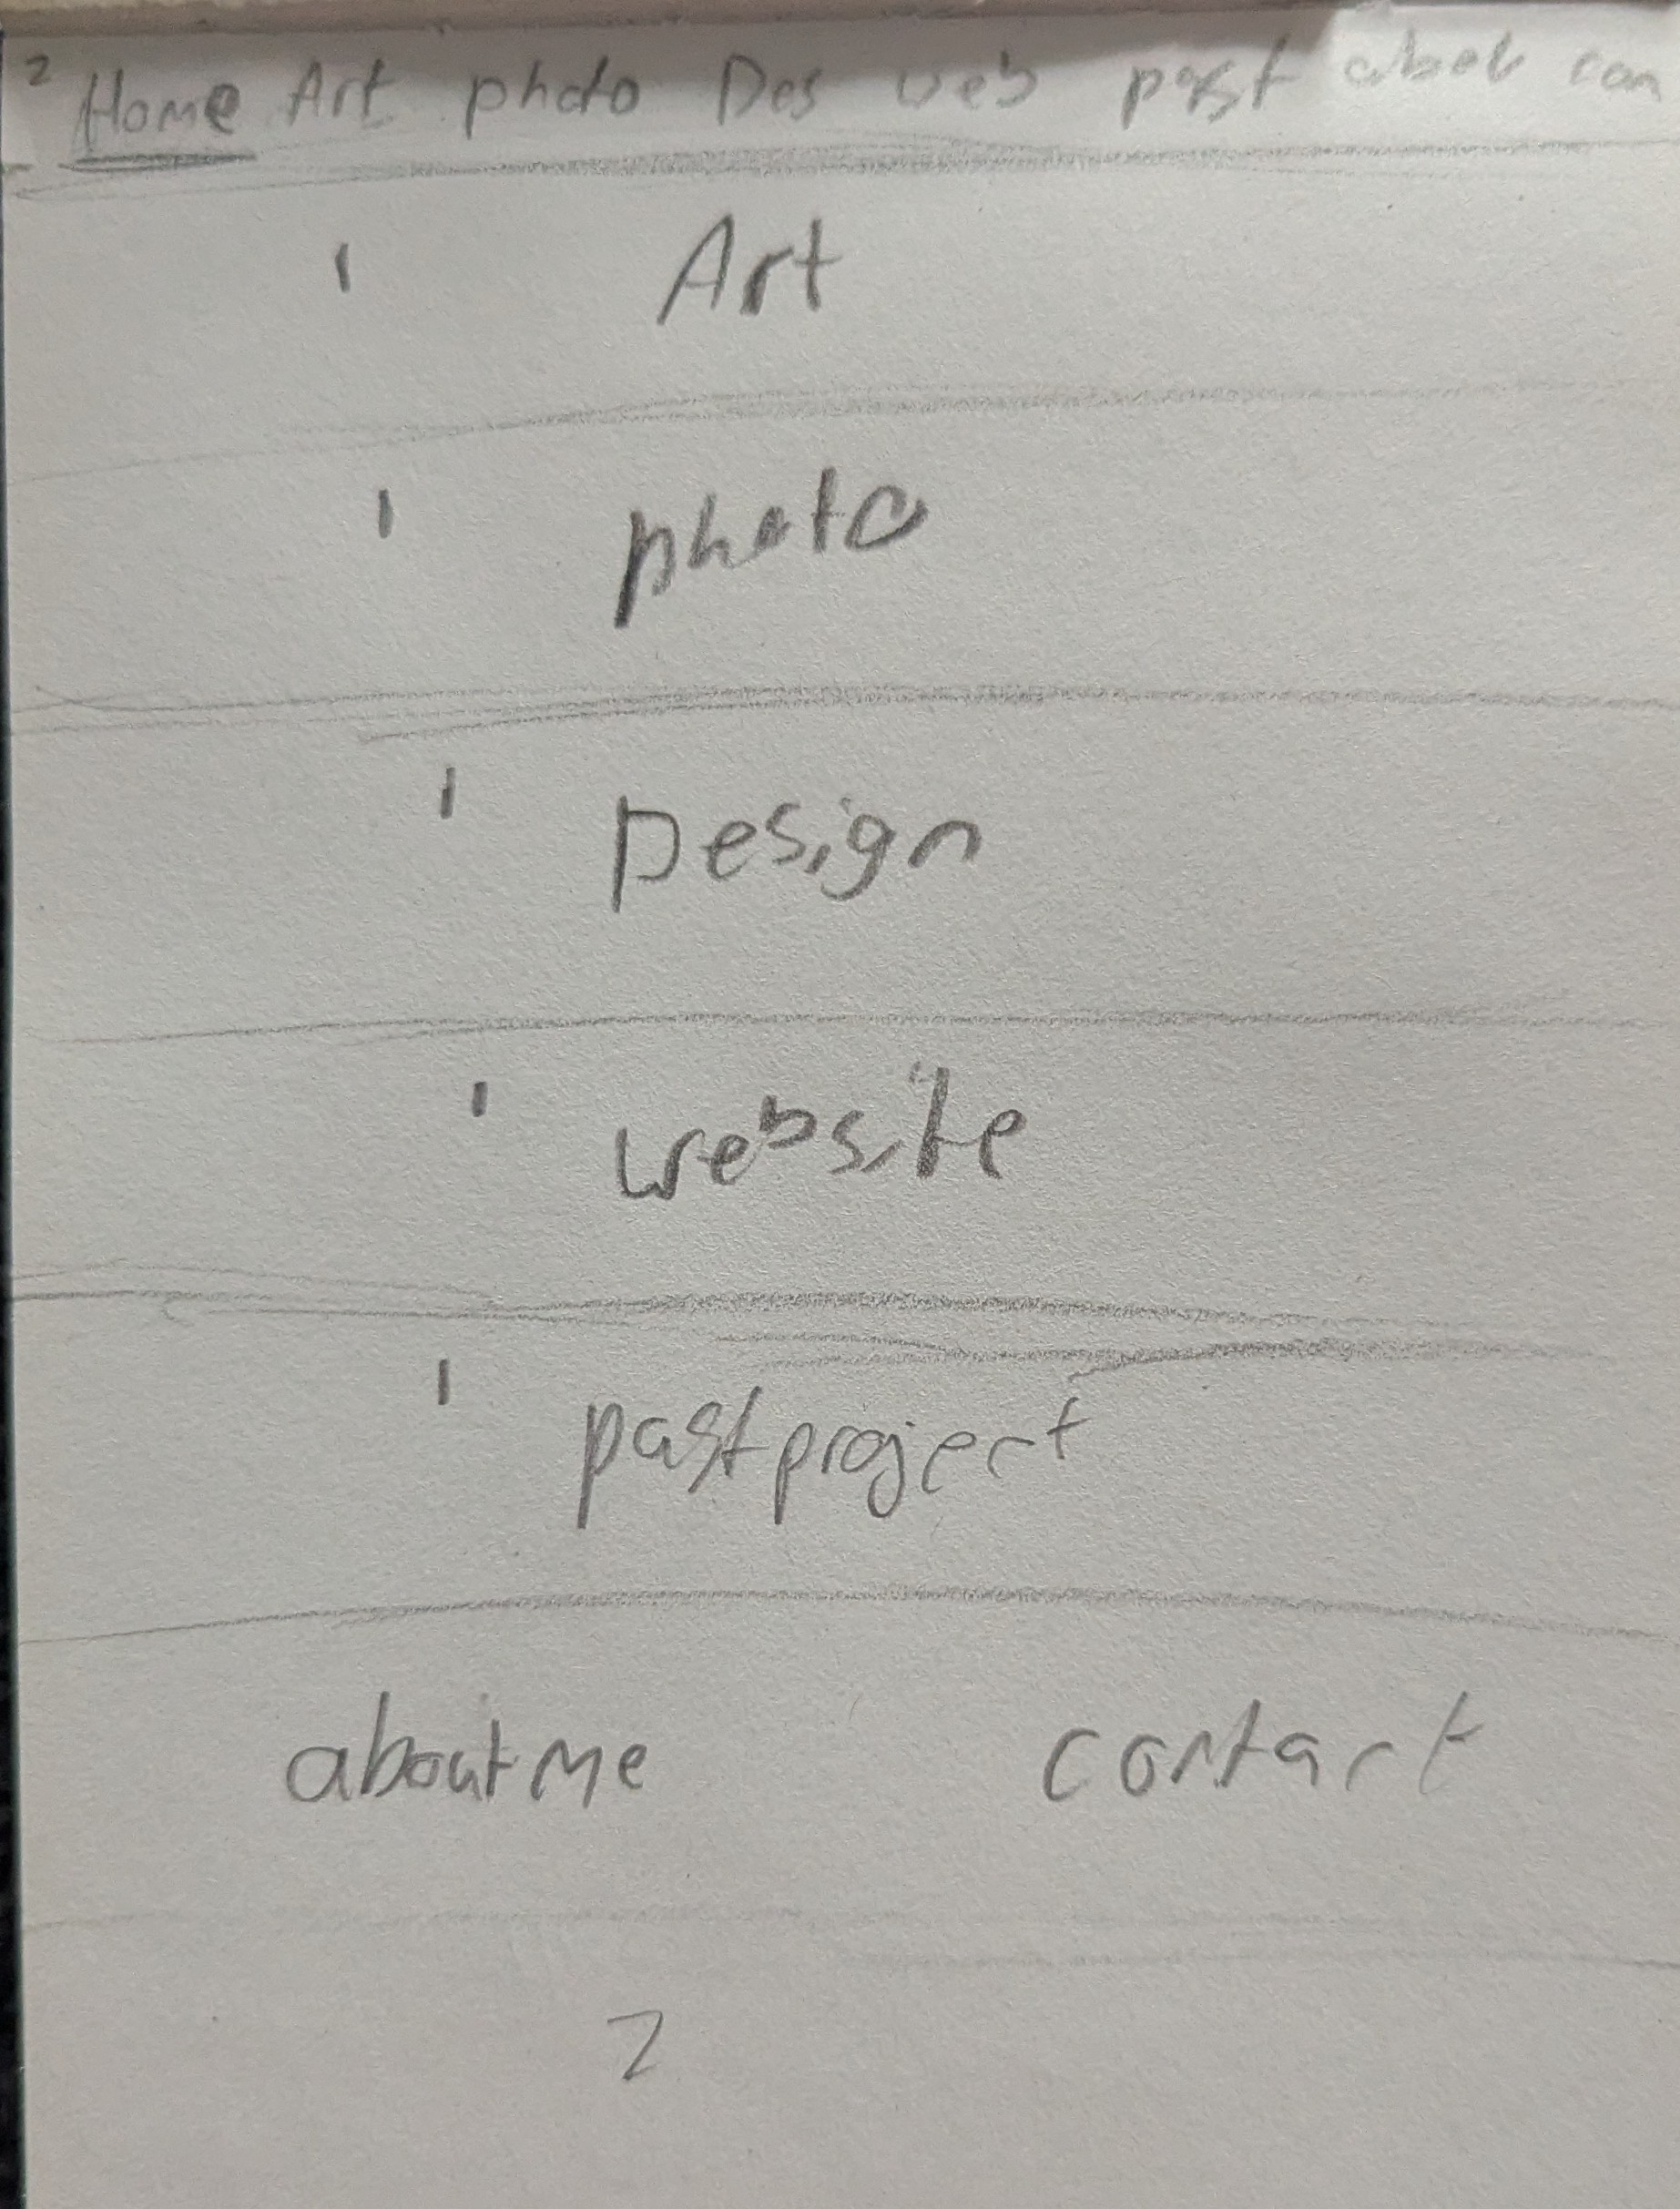 2 Home Art photo Des web past about con
' Art
' photo
' Design
' website
' past project
about me contact
2